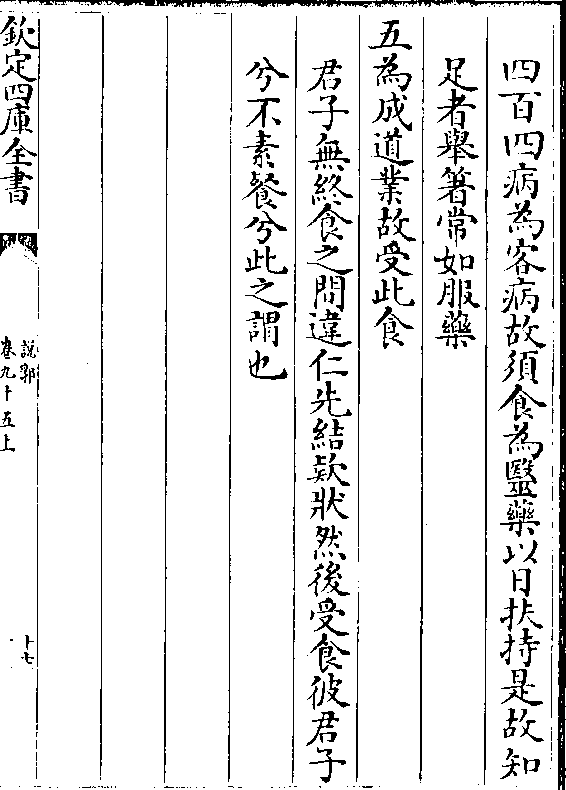 四百四病為客病故須食為醫藥以日扶持是故知
足者舉箸常如服藥
五為成道業故受此食
君子無終食之間違仁先結欵狀然後受食彼君子
兮不素餐兮此之謂也
欽定四庫全書
說郛
卷九十五上
十七